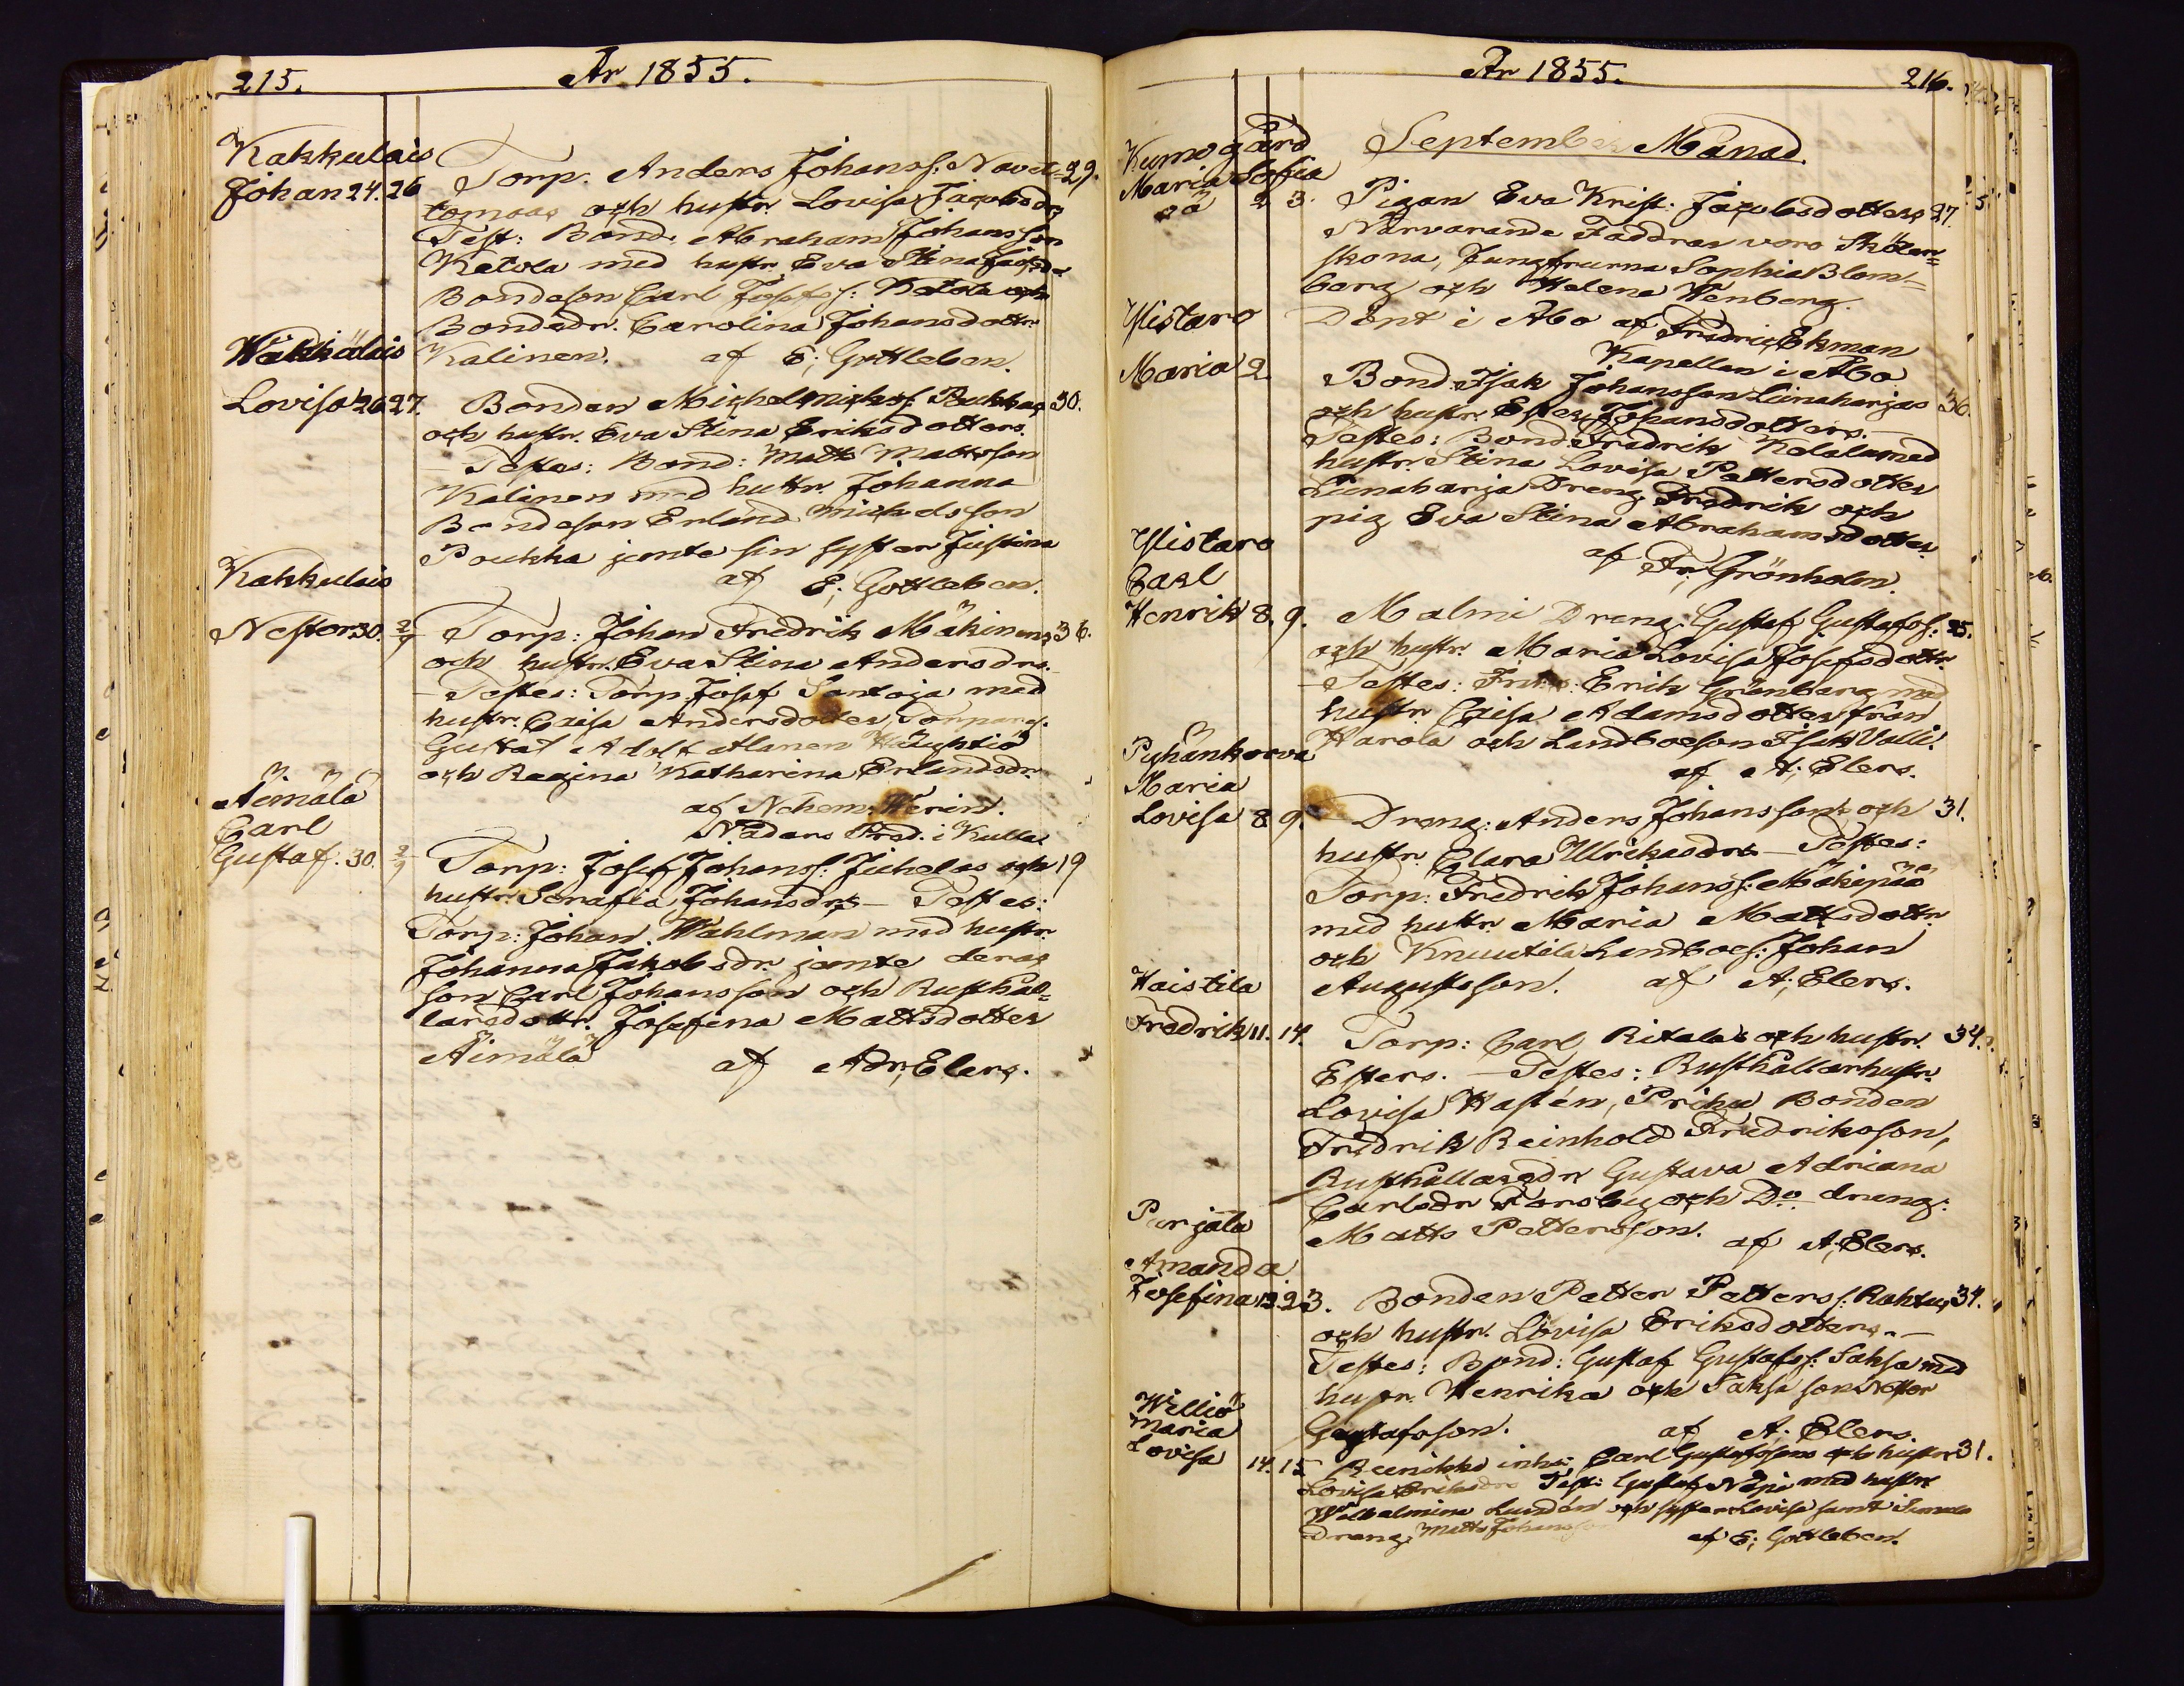 215.
År 1855.
Kakkulais
Johan 24. 26
Torp. Anders Johanss: Navet= 29.
tomaas och hustr. Lovisa Jacobsdrs
Test: Bond. Abraham Johansson
Ketola med hustr. Eva Stina
Bondeson Carl Josefss: Ketola och
Bondedr. Carolina Johansdotter
Kalinen. af E; Gottleben.
Wäkkiälais
Lovisa 26 27.
Bonden Michel Michelss. Poukkas 30.
och hustr. Eva Stina Eriksdotters.
– Testes: Bond: Matts Mattsson
Kalinen med hustr. Johanna
Bondeson Erland Michelsson
Poukka jemte sin syster Justina
af E; Gottleben.
Kakkulais
Nestor 30. 2/9
Torp: Johan Fredrik Mäkinens 36.
och hustr. Eva Stina Andersdrs.
– Testes: Torp. Josef Santoja med
hustr. Cajsa Andersdotter, Torpares.
Gustaf Adolf Alanen
och Regina Katharina Erlandsdr.
af Nehem: Werin.
Nådårs Pred. i Kulla.
Äimälä
Carl
Gustaf. 30. 2/9
Torp: Josef Johanss: Juhelas och 19
hustr. Serafia Johansdrs – Testes:
Torp: Johan Wahlman med hustr.
Johanna Jakobsdr. jemte deras
son Carl Johansson och Rusthål=
laredottr. Josefina Mattsdotter
Äimälä af Adr; Elers.
År 1855.
216.
September Månad.
Kumogård
Maria Sofia
oä 2 3.
Pigan Eva Krist: Jacobsdotters 27.
Närvarande Faddrar voro Sköter=
skorna, Jungfrurna Sophia Blom=
berg och Helena Wenberg.
Döpt i Åbo af Fredric Ekman
Kapellan i Åbo
Ylistaro
Maria 2.
Bond. Isak Johansson Liinaharjas 36.
och hustr. Ester Johansdotters.
Testes: Bond. Fredrik Kelälä med
hustr. Stina Lovisa Pettersdotter
Liinaharja Dreng. Fredrik och
pig. Eva Stina Abrahamsdotter
af Fr; Grönholm.
Ylistaro
Carl
Henrik 8. 9.
Malmi Dreng. Gustaf Gustafss: 25.
och hustr. Maria Lovisa Josefsdottr.
– Testes: Erik Grönberg med
hustr. Cajsa Adamsdotter från
Harola och Landboeson Isak Valli.
af A; Elers.
Pyhänkorva
Maria
Lovisa 8 9.
Dreng: Anders Johanssons och 31.
hustr. Clara Ulrikasdrs – Testes:
Torp: Fredrik Johanss: Mäkipää
med hustr. Maria Mattsdottr.
och Knuutila Landboes: Johan
Augustsson. af A; Elers.
Haistila
Fredrik 11. 14
Torp: Carl Ritalas och hustr. 34.
Esters. – Testes: Rusthållarhustr.
Lovisa Hastén, Prihu Bonden
Fredrik Reinhold Fredriksson,
Rusthållaredr Gustava Adriana
Carlsdr Forsby och Do. dreng:
Matts Pettersson. af A; Elers.
Purjala
Amanda
Josefina 19. 23.
Bonden Petter Petterss: Rohtus 34.
och hustr. Lovisa Eriksdotters. –
Testes: Bond: Gustaf Gustafss: Saksa med
hustr. Henrika och Saksa son Nestor
Gustafsson. af A. Elers.
Williö
Maria
Lovisa 14. 15
inhs: Carl Gustafssons och hustr 31.
Lovisa Eriksdrs Test: Gustaf Näpi med hustr
Wilhelmina Lundén och syster Lovisa samt
Dreng. Matts Johansson af E; Gottleben.